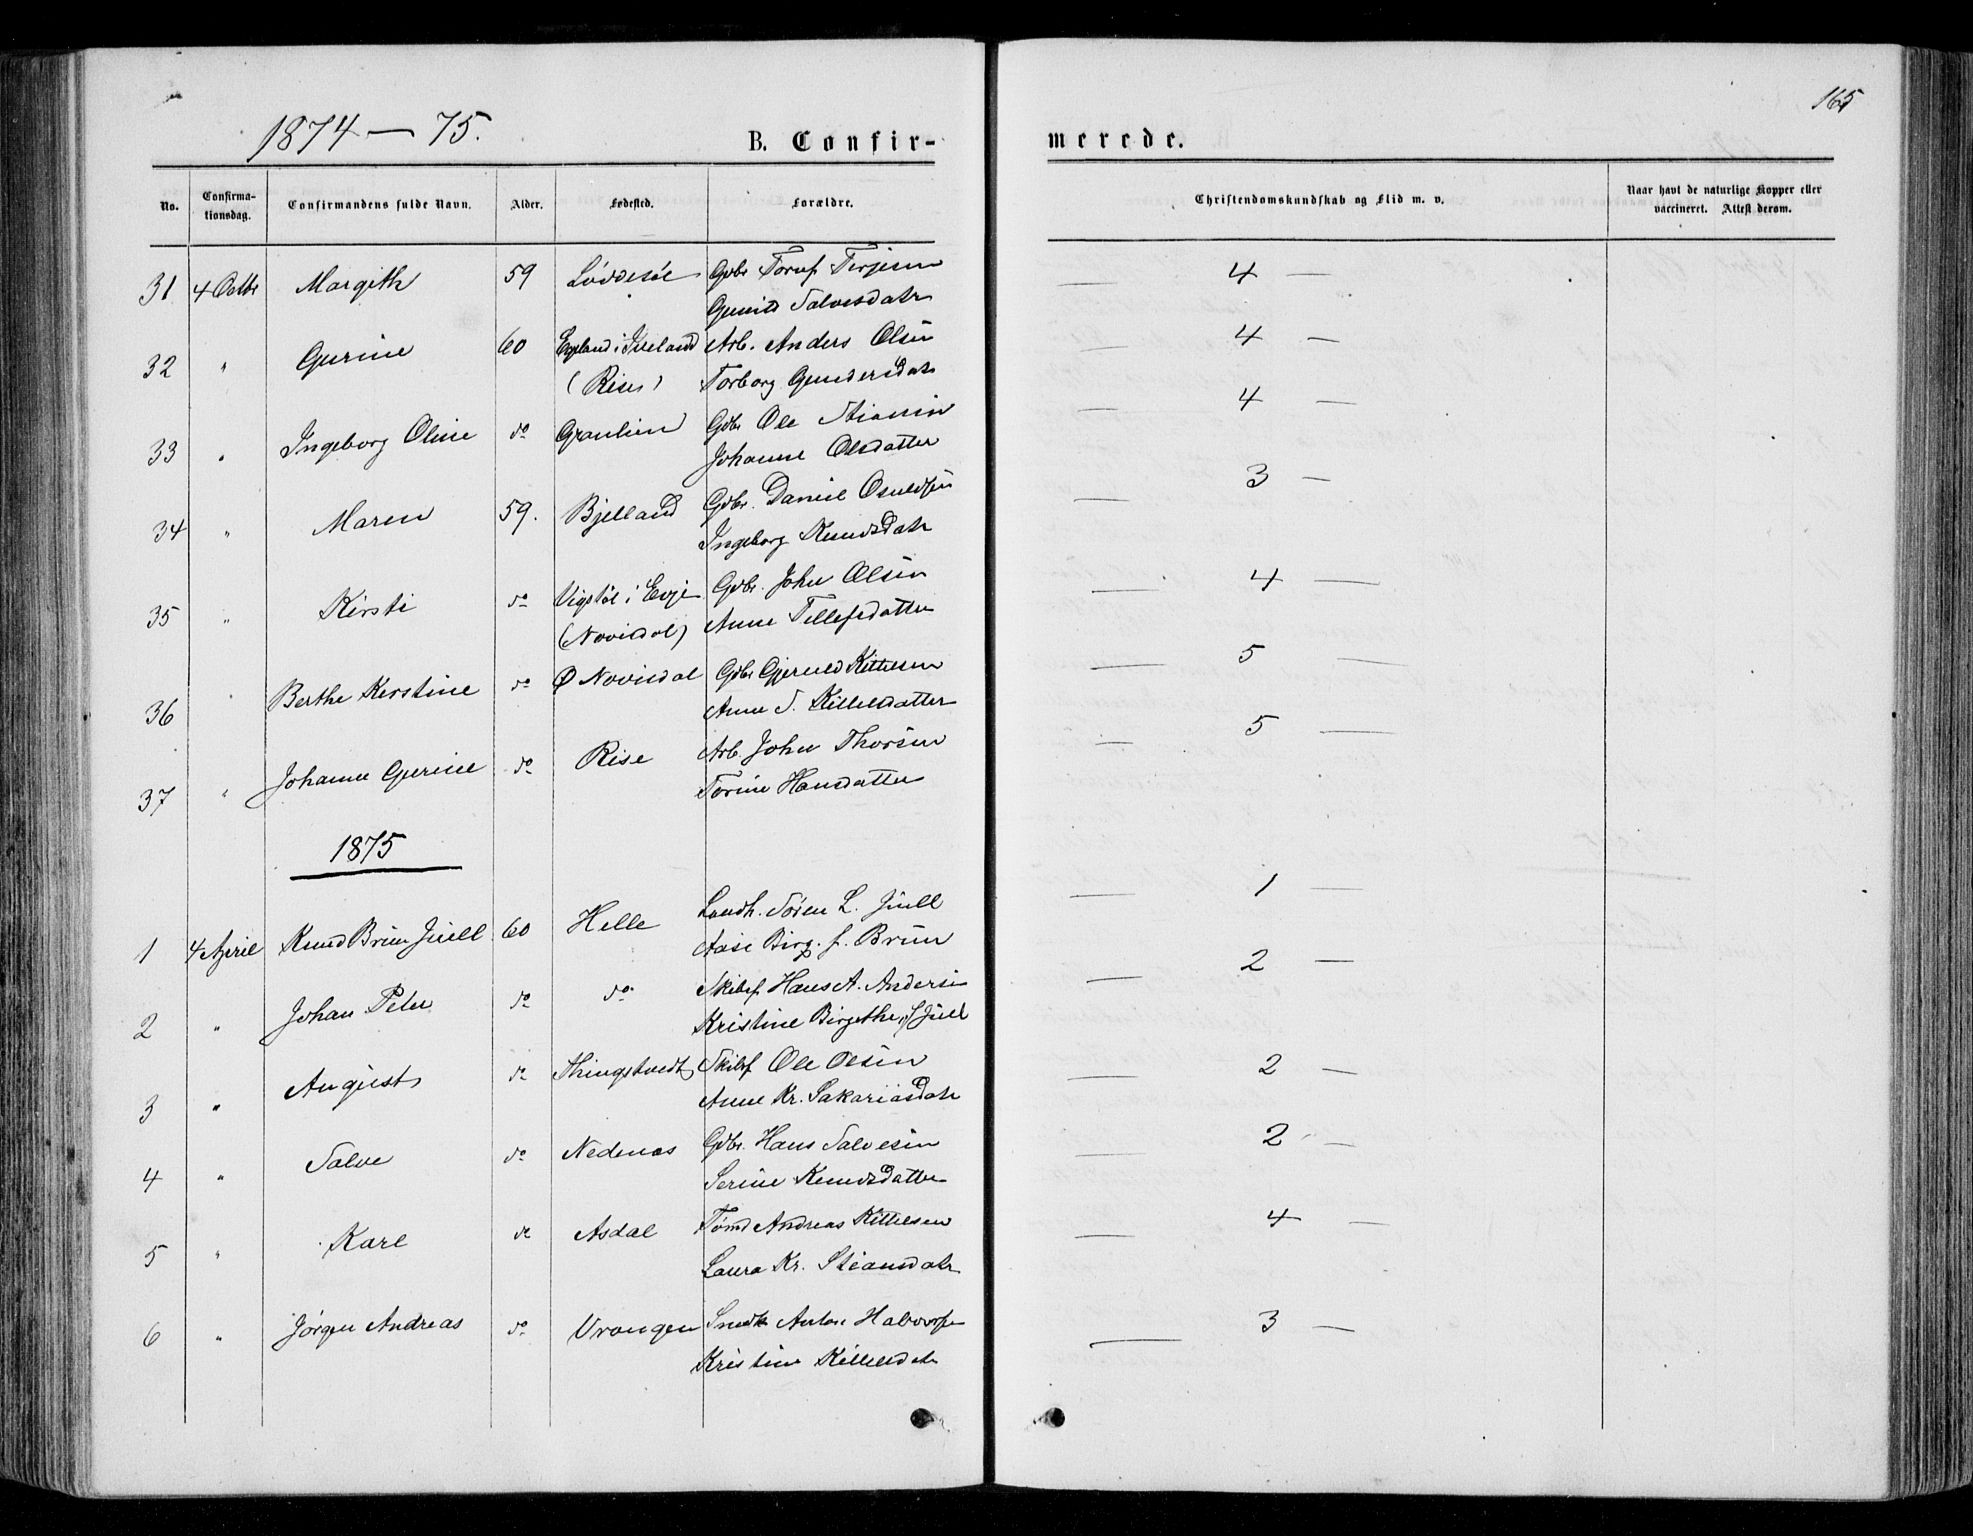 1874 — 75.
B. Confir-
merede.
165
No.
Confirma-
tionsdag.
Confirmandens fulde Navn.
Alder.
Fødested.
Forældre.
Christendomskundskab og Flid m. v.
Naar havt de naturlige Kopper eller
vaccineret. Attest derom.
31 4 Octbr Margith 59 Løddesøl Gdbr Toruf Terjesen 4 —
Gunild Salvesdatr
32 " Gurine 60 Espeland i Iveland Arb. Anders Olsen 4 —
(Rise) Torborg Gundersdatr
33 " Ingeborg Oline do Granlien Gdbr Ole Stiansen 4 —
Johanne Olsdatter
34 " Maren 59. Bjelland Gdbr. Daniel Osuldsen 3 —
Ingeborg Knudsdatr
35 " Kirsti do Vigstøl i Evje Gdbr. John Olsen 4 —
(Novisdal) Anne Tellefsdatter
36 " Berthe Kerstine do Ø Novisdal Gdbr Gjeruld Kittilsen 5 —
Anne S. Killelsdatter
37 " Johanne Gurine do Rise Arb John Thorsen 5 —
Torine Hansdatter
1875
1 4 April Knud Brun Juell 60 Helle Landh. Søren L. Juell 1 —
Aase Birg. f. Brun
2 " Johan Peter do do Skibsf Hans A. Andersen 2 —
Kristine Birgithe f Juell
3 " August do Thingstvedt Skibsf Ole Olsen 2 —
Anne Kr. Sakariasdatr
4 " Salve do Nedenæs Gdbr. Hans Salvesen 2 —
Serine Knudsdatter
5 " Karl do Asdal Tømd Andreas Kittelsen 4 —
Laura Kr. Stiansdatr
6 " Jørgen Andreas do Vrangen Smed Halvorsen 3 —
Kristine Killelsdatr